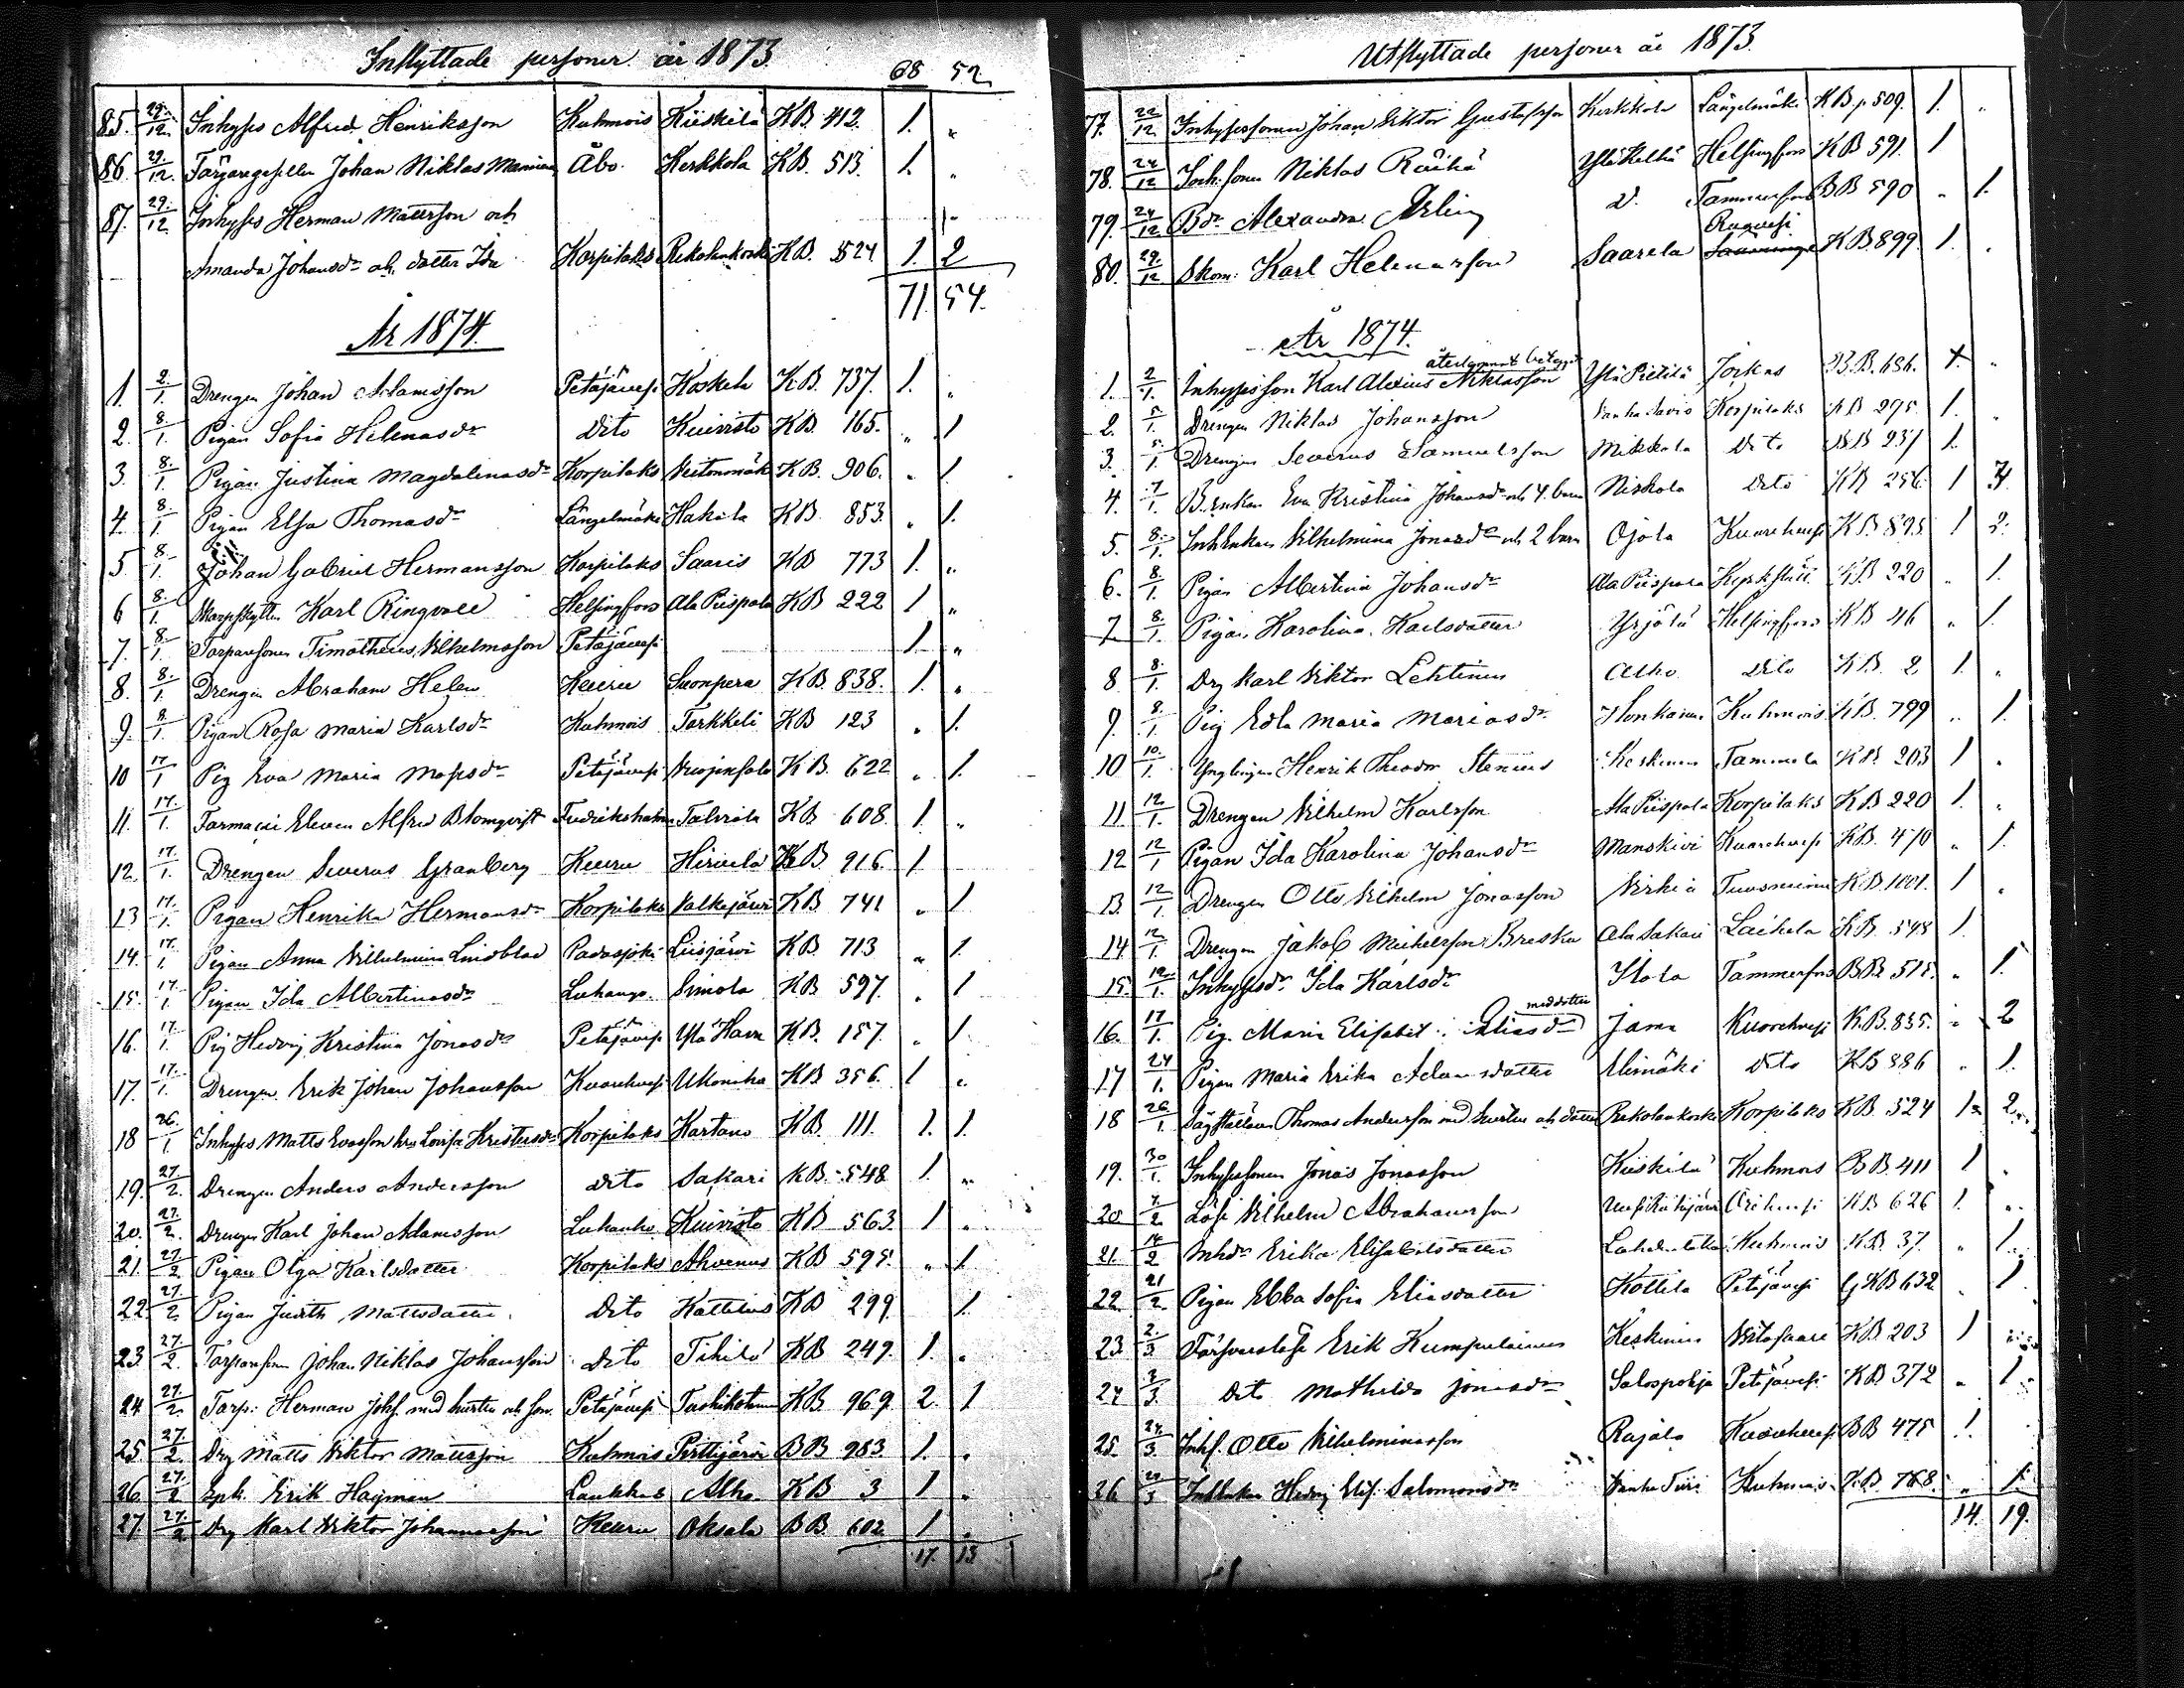 Inflyttade personer år 1873
68 52
85. 29./12. Inhyses Alfred Henriksson Kuhmois Kiiskilä KB. 412. 1. „
86. 29./12. Färgaregesellen Johan Niklas Åbo. Kerkkola KB. 513. 1. „
87. 29./12. Inhyses Herman Mattsson och
Amanda Johansdr och dotter Ida Korpilaks Rekolankoski KB. 524 1. 2
71. 54.
År 1874.
1. 2./1. Drengen Johan Adamsson Petäjävesi Koskela KB. 737. 1. „
2. 8./1. Pigan Sofia Helenasdr Dito Kuivisto KB. 165. „ 1
3. 8./1. Pigan Justina Magdalenasdr Korpilaks KB. 906. „ 1.
4. 8./1. Pigan Elsa Thomasdr Längelmäki Hakila KB. 853. „ 1.
5 8./1. Johan Gabriel Hermansson Korpilaks Saaris KB 773 1. „
6 8./1. Skarpskytten Karl Ringvall Helsingfors Ala Piispala KB 222 1 „
7. 8./1. Torparesonen Timotheus Vilhelmsson Petäjävesi 1. „
8. 8./1. Drengen Abraham Helen Keuru Suonpera KB. 838. 1. „
9. 8./1. Pigan Rosa Maria Karlsdr Kuhmois Tarkkili KB 123 „ 1.
10 17/1 Pig Eva Maria Mosesdr Petäjävesi KB. 622 „ 1.
11. 17./1. Farmacie Eleven Alfred Blomqvist Fredrikshamn Talvila KB 608. 1. „
12. 17./1. Drengen Severus Granberg Keuru Hirvela KB 916. 1
13 17./1. Pigan Henrika Hermansdr Korpilaks Valkejärvi KB. 741 „ 1
14. 17./1. Pigan Anna Vilhelmina Lindblad Padasjoki Liisjärvi KB. 713 „ 1.
15. 17./1 Pigan Ida Albertinasdr Luhango. Simola KB 597. „ 1
16. 17./1. Pig Hedvig Kristina Jonasdr Petäjävesi Ylä Havu KB. 157. „ 1.
17. 17./1. Drengen Erik Johan Johansson Kuorehvesi Ukonika KB 356. 1 „
18 26./1 Inhyses Matts Evasson hu Lovisa Kristersdr Korpilaks Kartano KB. 111. 1. 1.
19. 27./2. Drengen Anders Andersson dito Sakari KB. 548 1. „
20. 27./2. Drengen Karl Johan Adamsson Luhanko Kuivisto KB 563 1 „
21. 27./2. Pigan Olga Karlsdotter Korpilaks Ahvenus KB 595. „ 1.
22. 27./2. Pigan Judith Mattsdotter. Dito Kattilus KB 299. 1.
23. 27./2. Torparesonen Johan Niklas Johansson Dito Tihilä KB 249. 1. „
24. 27./2. Torp. Herman Johs. med hustru och son. Petäjävesi KB. 969. 2. 1
25. 27./2. Drg Matts Viktor Mattsson Kuhmois Perttijärvi BB 983. 1. „
26. 27./2 Erik Hagman Laukkas Alho. KB 3 1 „
27. 27./2 Drg Karl Viktor Johannesson Keuru Oksala BB. 602 1 „
17. 13
Utflyttade personer år 1873.
77. 22/12 Inhysessonen Johan Viktor Gustafsson Kerkkola Längelmäki KB. p 509. 1. „
78. 24/12 Inh. sonen Niklas Räihä Helsingfors KB 591. 1
79. 24/12 Bdr Alexandra D. Tammerfors BB 590 „ 1.
80. 29./12 Skom. Karl Helenasson Saarela Ruovesi KB 899. 1. „
År 1874.
1. 2/1. Inhysesson Karl Alexius Niklasson återkommit betyget Ylä Pietilä Jockas BB. 686. 1. „
2. 5/1. Drengen Niklas Johansson Vanha Savio Korpilaks KB 295. 1. „
3. 5./1. Drengen Severus Samuelsson Mikkola Dito BB 237 1.
4 7/1. B. enkan Eva Kristina Johansdr och 4. barn Niskola Dito KB 256. 1 4
5. 8./1. Inh Enkan Vilhelmina Jonasdr och 2 barn Ojala Kuorehvesi KB 825. 1 2.
6. 8./1. Pigan Albertina Johansdr Ala Piispala KB 220 „ 1.
7 8./1. Pigan Karolina Karlsdotter Yrjölä Helsingfors KB 46 „ 1.
8 8./1. Drg Karl Viktor Lehtinen Alho Dito KB. 2 1. „
9. 8./1. Pig Edla Maria Mariasdr Honkainen Kuhmois KB. 799 „ 1.
10 10./1. Ynglingen Henrik Theodor Stenius Keskinen Tammela KB. 203 1 „
11. 12/1. Drengen Vilhelm Karlsson Ala Piispala Korpilaks KB 220 1. „
12 12/1 Pigan Ida Karolina Johansdr Manskivi Kuorehvesi KB. 470 „ 1.
13. 12/1. Drengen Otto Vilhelm Jonasson Virhiä KB. 1001. 1 „
14 12/1. Drengen Jakob Michelsson Breska Ala Sakari Laihela KB. 548 1.
15. 12/1. Inhysesdr. Ida Karlsdr Tammerfors BB 515. „ 1.
16. 17/1. Pig. Maria Elisabet Eliasdr med dotter Jama Kuorehvesi KB. 835. „ 2
17 24/1. Pigan Maria Erika Adamsdotter Elimäki Dito KB 886 „ 1.
18 26/1. Thomas Andersson med hustru och dotter Rekolankoski Korpilaks KB. 524 1 2
19. 30/1. Inhysessonen Jonas Jonasson Kiiskilä Kuhmois BB. 411 1 „
20 7/2 Löse Vilhelm Abrahamsson KB 626 1. „
21. 14/2 Inhdr Erika Elisabetsdotter Kuhmois KB. 37. „ 1.
22. 21/2 Pigan Ebba Sofia Eliasdotter Kottila Petäjävesi G KB 632 „ 1
23. 2./3. Erik Kumpulainen Keskinen Viitasaari KB 203 1 „
24 3/3. dito Mathilda Jonasdr Salospohja Petäjävesi KB. 372 „ 1.
25. 24/3. Inhs. Otto Vilhelminasson Rajala Kuorehvesi BB 475 1.
26. Hedvig Elis. Salomonsdr Kuhmois KB. 788. „ 1.
14. 19.